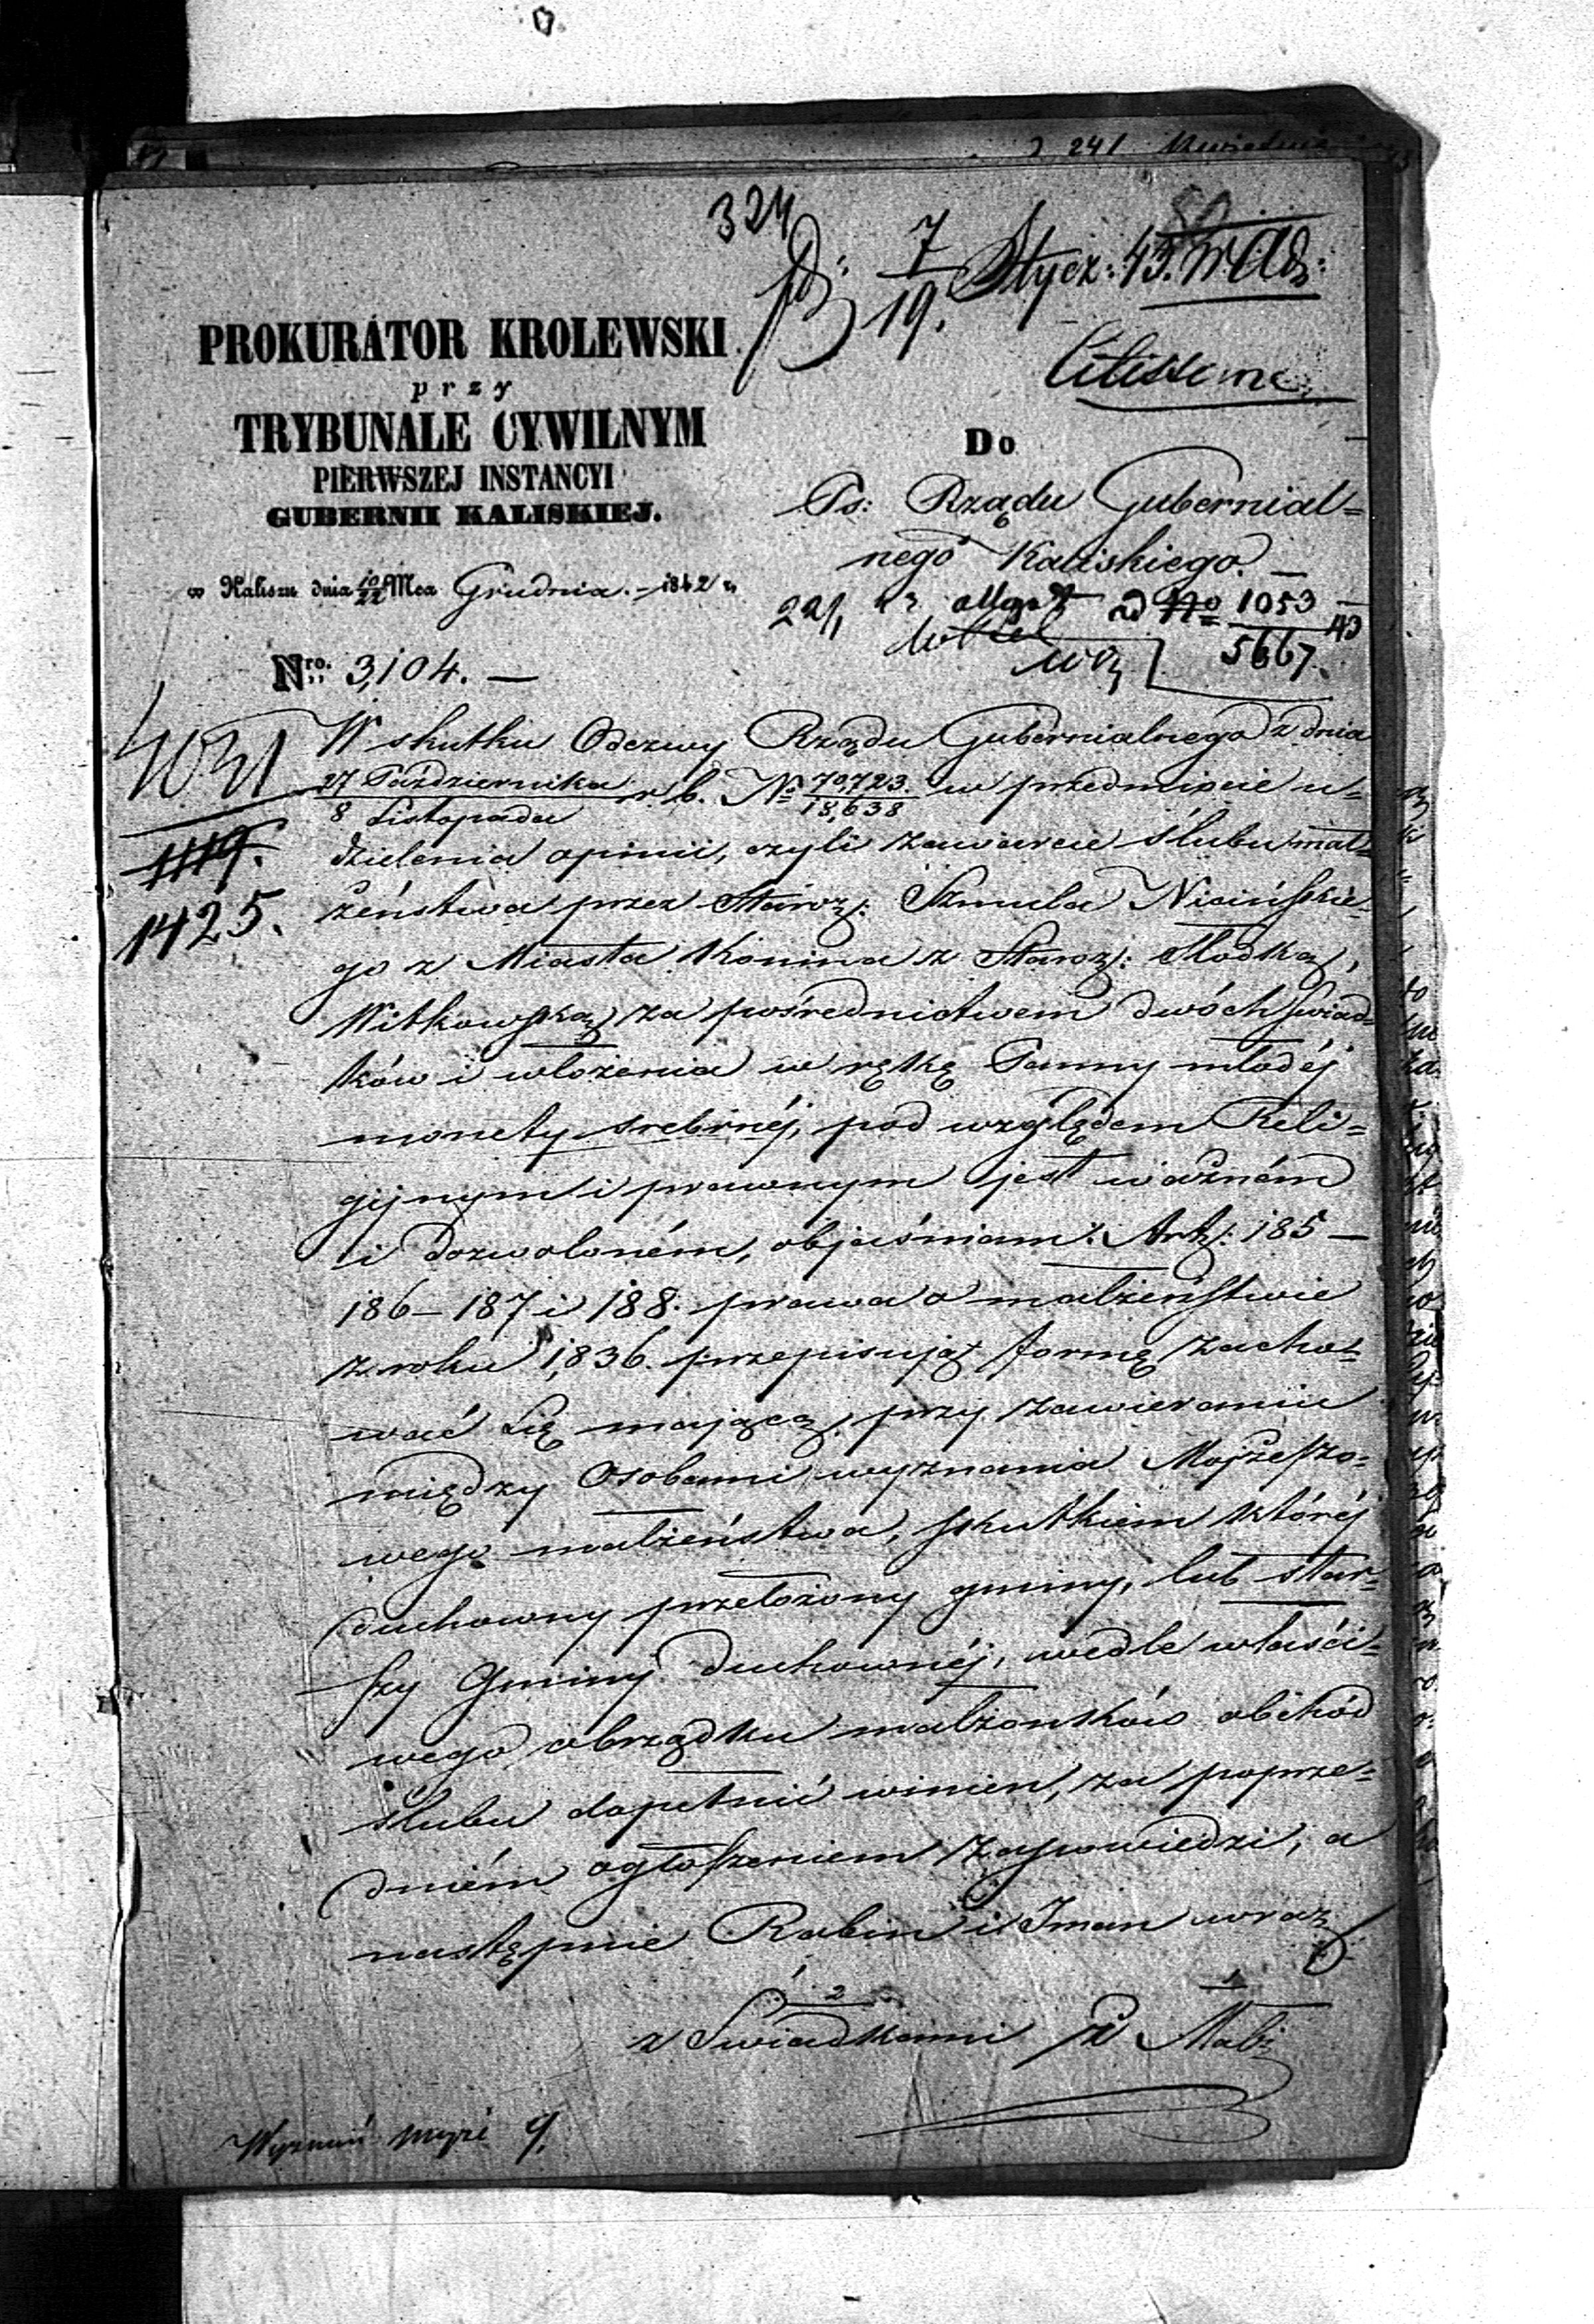 324
7/19. Stycz: 43. W. Ad:
Citissime
PROKURATOR KROLEWSKI
przy
TRYBUNALE CYWILNYM
PIERWSZEJ INSTANCYI
GUBERNII KALISKIEJ.
w Kaliszu dnia 10/22 Mca Grudnia. - 1842 r.
Nro. 3,104. —
Do
Rządu Gubernial=
nego Kaliskiego. —
ad No 1053/5667. 43
1119.
1425.
W skutku Odezwy Rządu Gubernialnego z dnia
27 Października/8 Listopada r. b. No 70,723./18,638 w przedmiocie u=
dzielenia opinii, czyli zawarcie ślubu mał=
żeństwa przez Staroz: Szmula Nicińskie=
go z Miasta Konina z Staroz: Słodką,
Witkowską za pośrednictwem dwóch świad=
ków i włożenia w rękę Panny młodéj
monety srebrnéj, pod względem Reli=
gijnym i prawnym jest ważném
i dozwoloném, objaśniam: Art: 185 —
186 — 187 i 188. prawa o małżeństwie
z roku 1,836. przepisują formę zacho=
wać się mającą, przy zawieraniu
między Osobami wyznania Mojżeszo=
wego małżeństwa, skutkiem któréj
duchowny przełożony gminy, lub star=
szy Gminy duchownéj, wedle właści=
wego obrządku małżonków obchód
ślubu dopełnić winien, za poprze=
dniém ogłoszeniem zapowiedzi, a
następnie Rabin i Iman wraz
z Świadkami i z Małż: